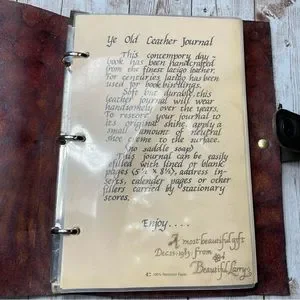 Ye Old Leather Journal
This contempory day-
book has been handcrafted
from the finest latigo leather.
For centuries, latigo has been
used for bookbindings.
Soft but durable, this
leather journal will wear
handsomely over the years.
To restore your journal to
its original shine, apply a
small amount of neutral
shoe creme to the surface.
(no saddle soap)
This journal can be easily
filled with lined or blank
pages (5½ x 8½), address in-
serts, calender pages or other
fillers carried by stationary
stores.
Enjoy....
A most beautiful gift
Dec. 25, 1983, from
Beautiful Larry's